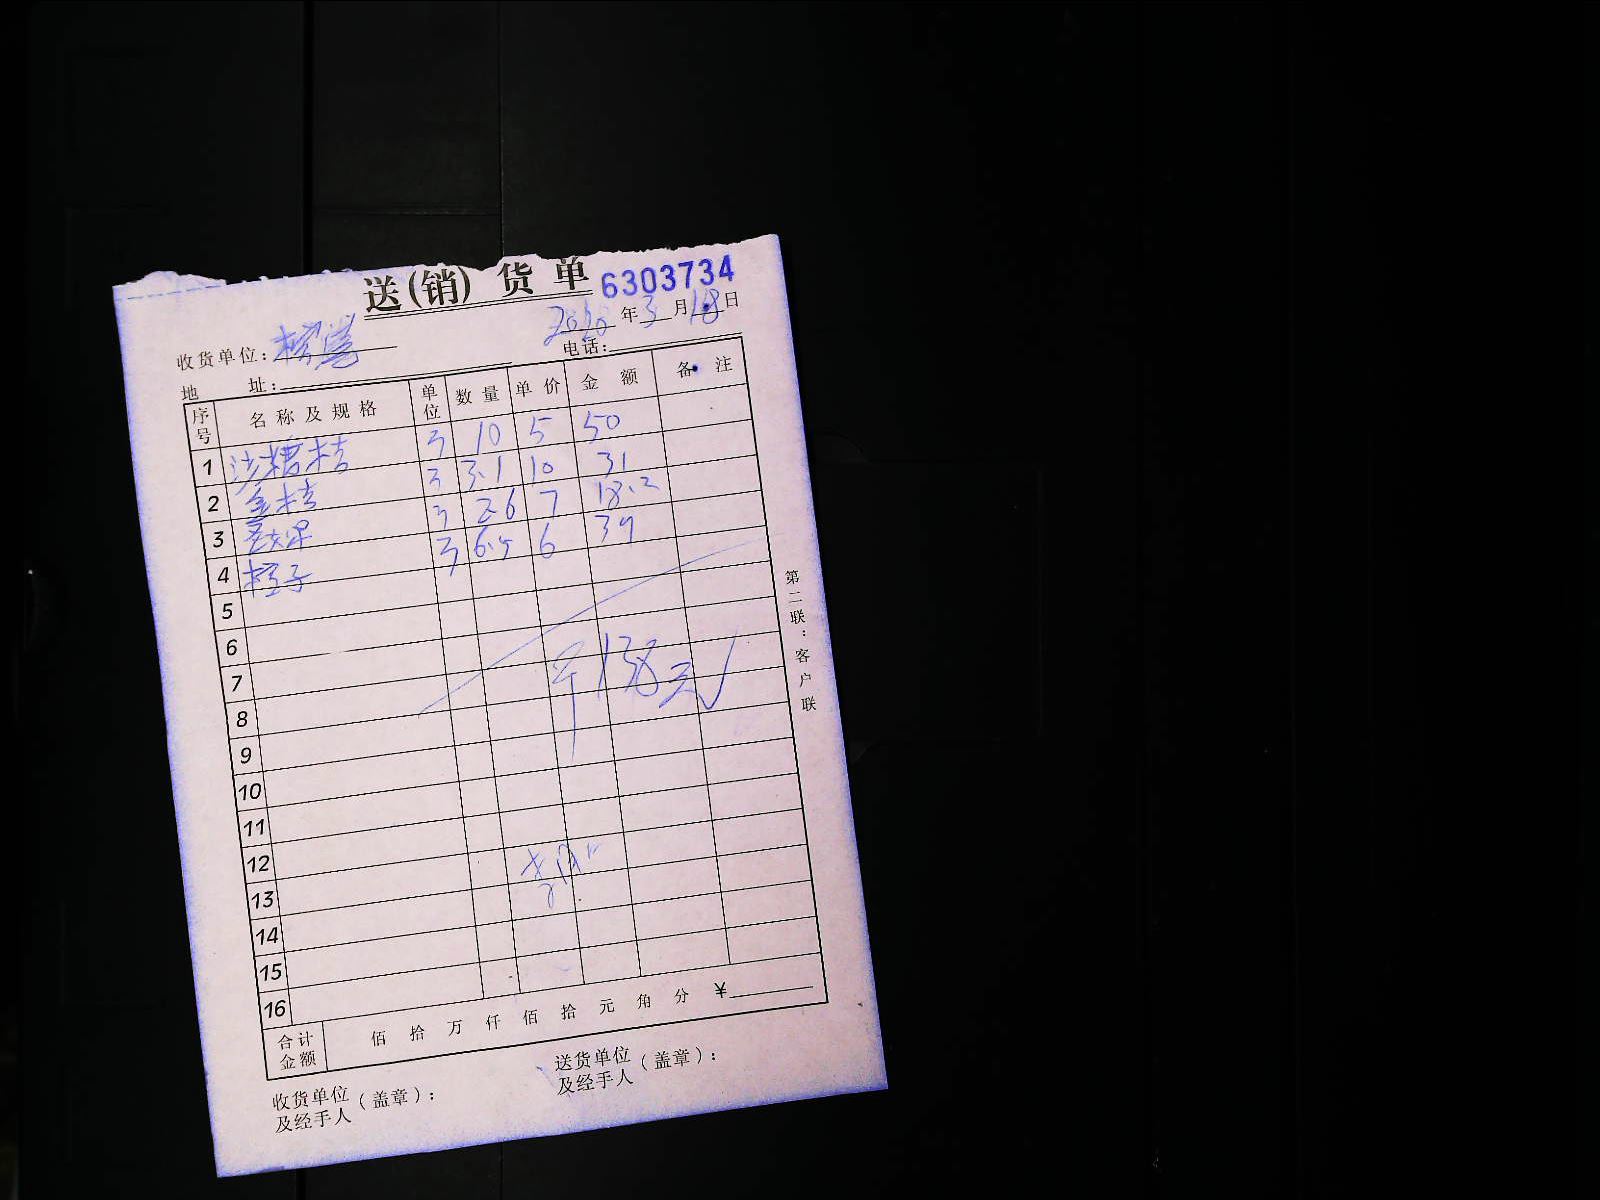 送(销)货单 6303734
年3月18日
收货单位:
电话:
地 址:
序号 名称及规格 单位 数量 单价 金额 备注
1 沙糖桔 斤 10 5 50
2 金桔 斤 3.1 10 31
3 斤 2.6 7 18.2
4 橙子 斤 6.5 6 39
5
6
7
8 138元
9
10
11
12
13
14
15
16
合计金额 佰 拾 万 仟 佰 拾 元 角 分 ¥
收货单位及经手人(盖章):
送货单位及经手人(盖章):
第二联:客户联